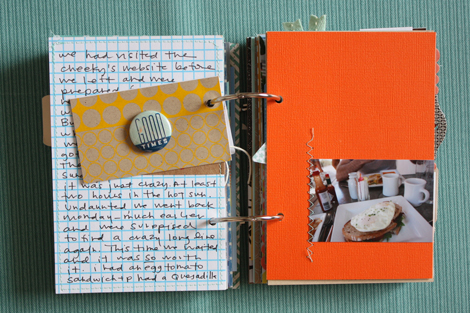 we had visited the
cheeky's website before
we left and were
prepared
GOOD
TIMES
it was just crazy. At least
two hours in the hot sun.
Undaunted we went back
monday - much earlier
and were surprised
to find a crazy long line
again. This time we waited
and it was so worth
it. i had an egg tomato
sandwich + p had a Quesadilla